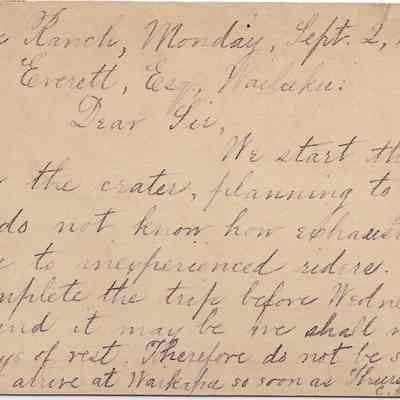 Ranch, Monday, Sept. 2,
Everett, Esq., Wailuku:
Dear Sir,
We start th
the crater, planning to
do not know how exhaus
to inexperienced riders.
mplete the trip before Wedne
and it may be we shall
ys of rest. Therefore do not be s
arrive at Waikapu so soon as Thurs